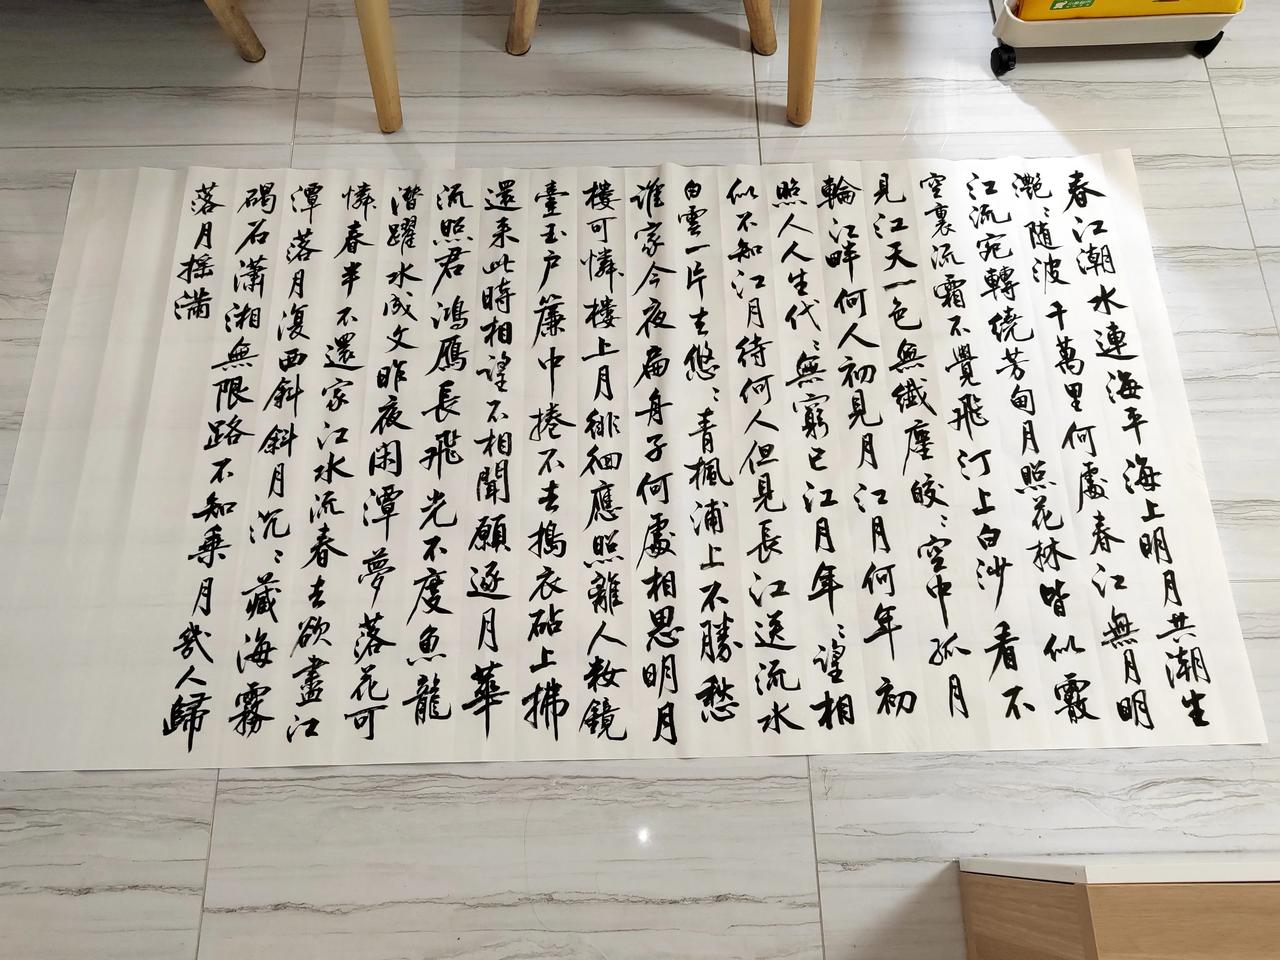 春江潮水連海平海上明月共潮生
灧〻随波千萬里何處春江無月明
江流宛轉繞芳甸月照花林皆似霰
空裏流霜不覺飛汀上白沙看不
見江天一色無纖塵皎〻空中孤月
輪江畔何人初見月江月何年初
照人人生代〻無窮已江月年〻望相
似不知江月待何人但見長江送流水
白雲一片去悠〻青楓浦上不勝愁
誰家今夜扁舟子何處相思明月
樓可憐樓上月徘徊應照離人妝鏡
臺玉户簾中捲不去搗衣砧上拂
還来此時相望不相聞願逐月華
流照君鴻雁長飛光不度魚龍
潛躍水成文昨夜闲潭夢落花可
憐春半不還家江水流春去欲盡江
潭落月復西斜斜月沉〻藏海霧
碣石瀟湘無限路不知乘月幾人歸
落月摇满